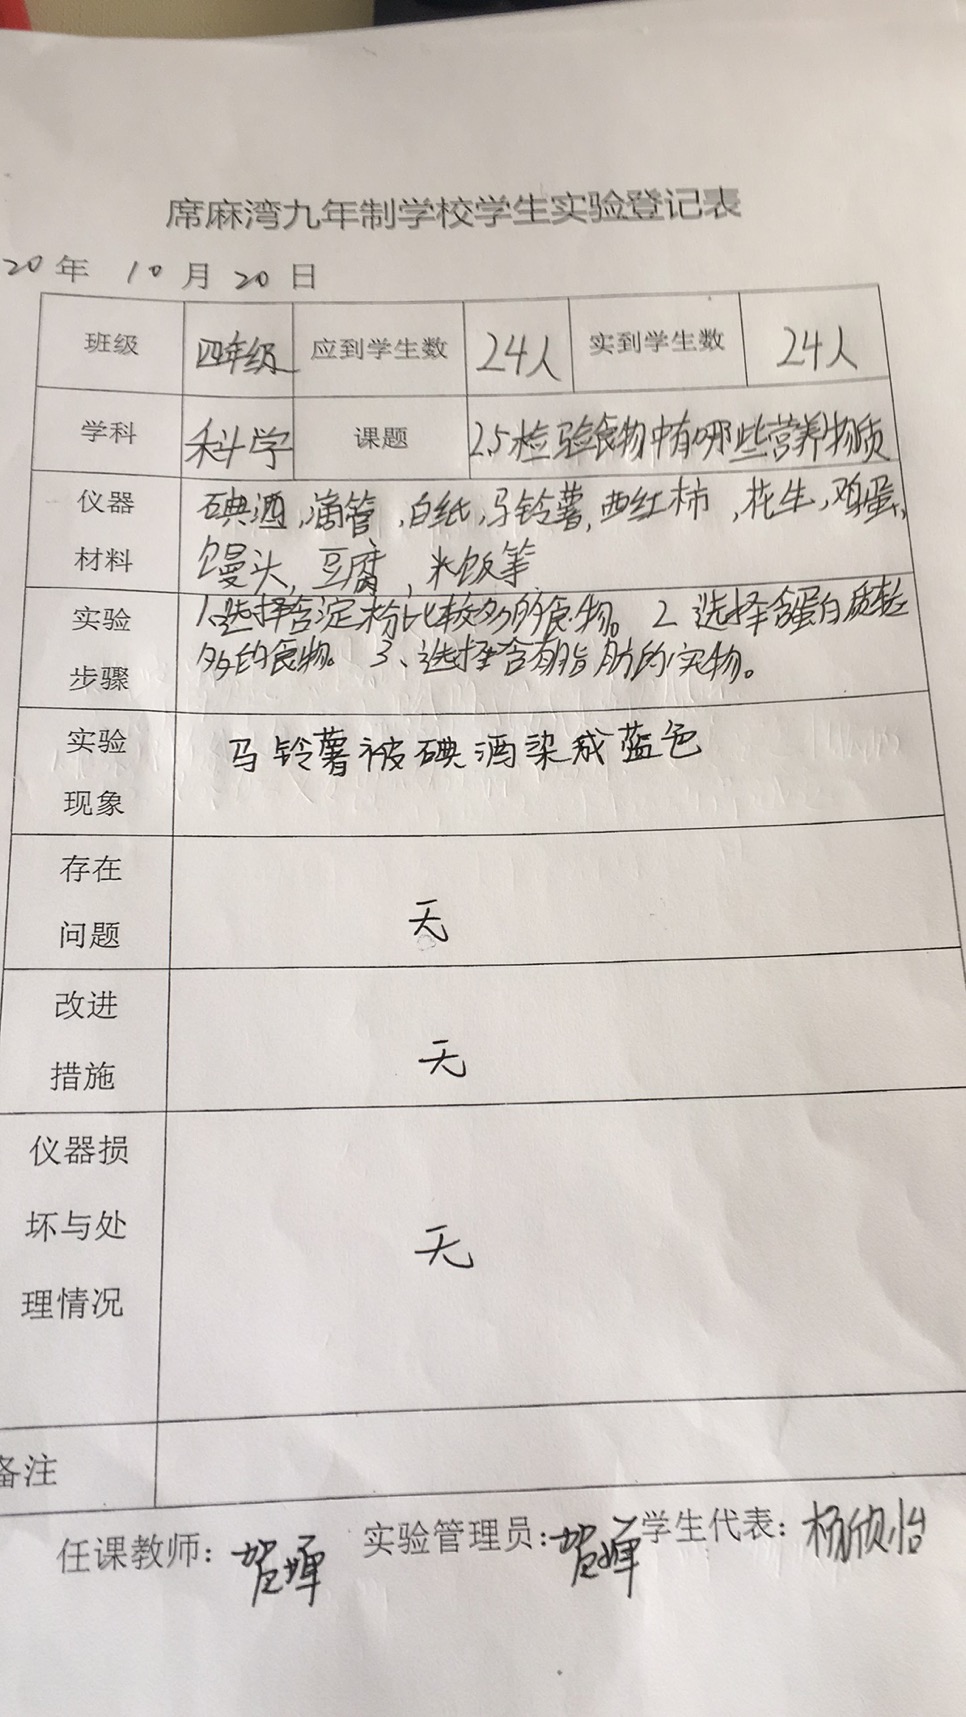 席麻湾九年制学校学生实验登记表
20年 10月20日
班级 四年级 应到学生数 24人 实到学生数 24人
学科 科学 课题 2.5检验食物中有哪些营养物质
仪器 碘酒,滴管,白纸,马铃薯,西红柿,花生,鸡蛋,
材料 馒头,豆腐,米饭等
实验 1、选择含淀粉比较多的食物。 2、选择含蛋白质较
步骤 多的食物。 3、选择含有脂肪的实物。
实验 马铃薯被碘酒染成蓝色
现象
存在
问题 无
改进
措施 无
仪器损
坏与处 无
理情况
备注
任课教师: 贺婵 实验管理员: 贺婵 学生代表: 杨欣怡